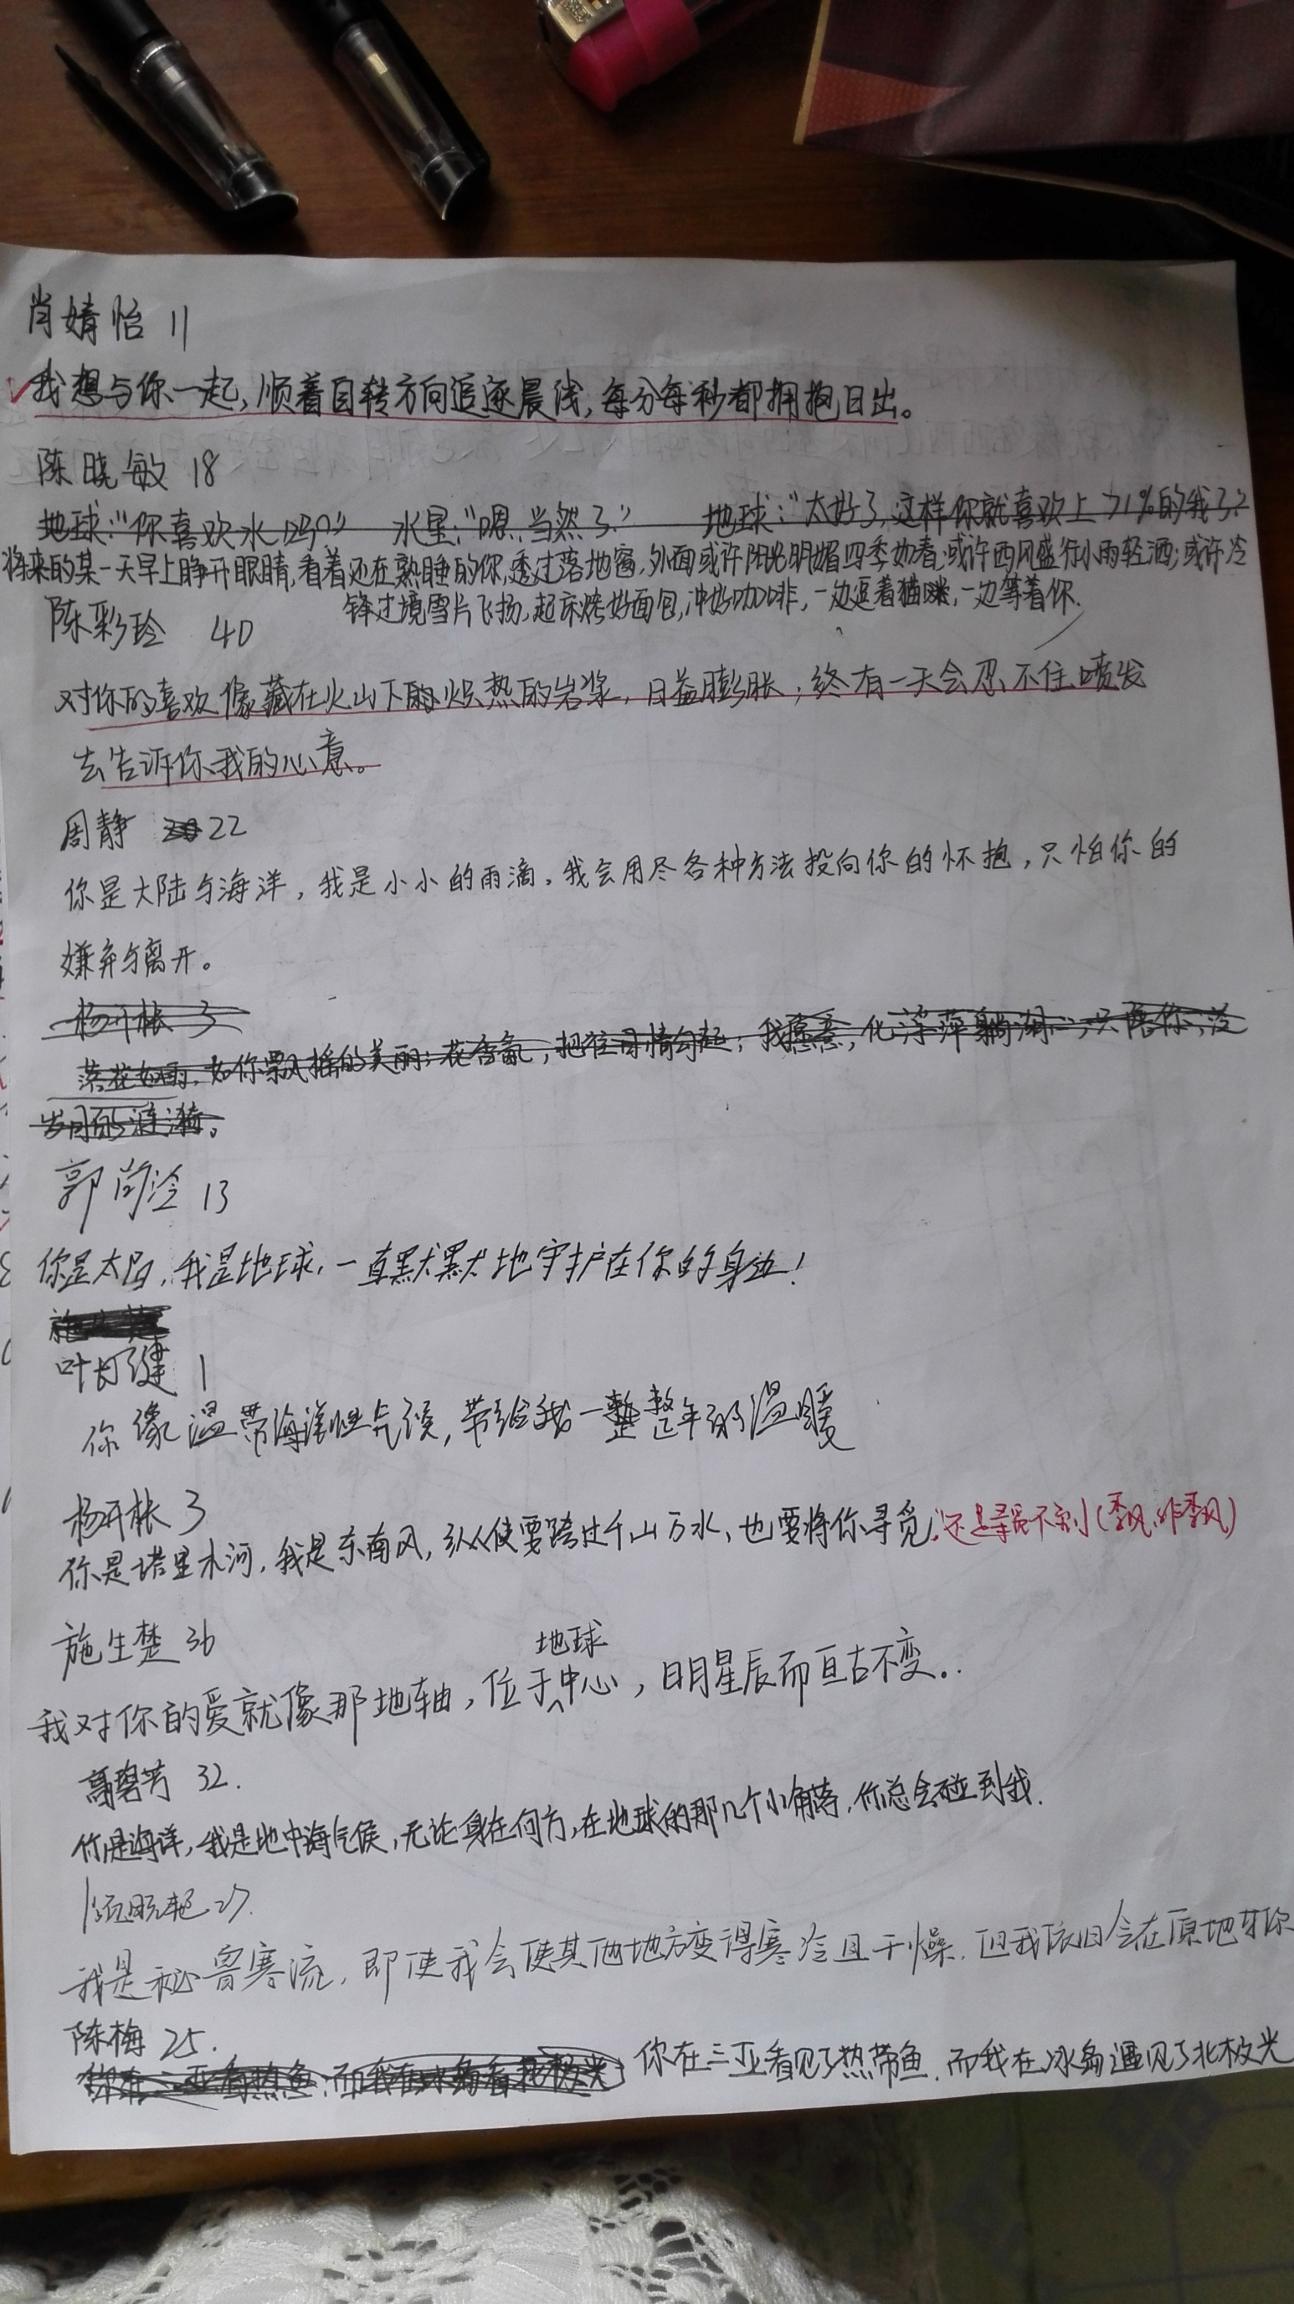 肖婧怡 11
我想与你一起,顺着自转方向追逐晨线,每分每秒都拥抱日出。
陈晓敏 18
地球:“你喜欢水吗?” 水星:“嗯,当然了.” 地球:“太好了,这样你就喜欢上71%的我了?
将来的某一天早上睁开眼睛,看着还在熟睡的你,透过落地窗,外面或许阳光明媚四季如春;或许西风盛行小雨轻洒;或许冷
锋过境雪片飞扬,起床烤好面包,冲好咖啡,一边逗着猫咪,一边等着你.
陈彩玲 40
对你的喜欢像藏在火山下的炽热的岩浆,日益膨胀,终有一天会忍不住喷发
去告诉你我的心意。
周静 22
你是大陆与海洋,我是小小的雨滴,我会用尽各种方法投向你的怀抱,只怕你的
嫌弃与离开。
杨开帐 3
落花如雨,如你飘摇的美丽;花香氤,把往日情勾起;我愿意,化
岁月的涟漪。
郭 13
你是太阳,我是地球,一直默默地守护在你的身边!
叶 1
你像温带海洋性气候,带给我一整年的温暖
杨开帐 3
你是塔里木河,我是东南风,纵使要跨过千山万水,也要将你寻觅.还是寻觅不到(季风,非季风)
施生楚 36
地球
我对你的爱就像那地轴,位于中心,日月星辰而亘古不变..
高碧芳 32.
你是海洋,我是地中海气候,无论身在何方,在地球的那几个小角落,你总会碰到我.
27.
我是秘鲁寒流,即使我会使其他地方变得寒冷且干燥.但我依旧会在原地等你
陈梅 25.
你在三亚看热带鱼,而我在冰岛看北极光 你在三亚看见了热带鱼.而我在冰岛遇见了北极光